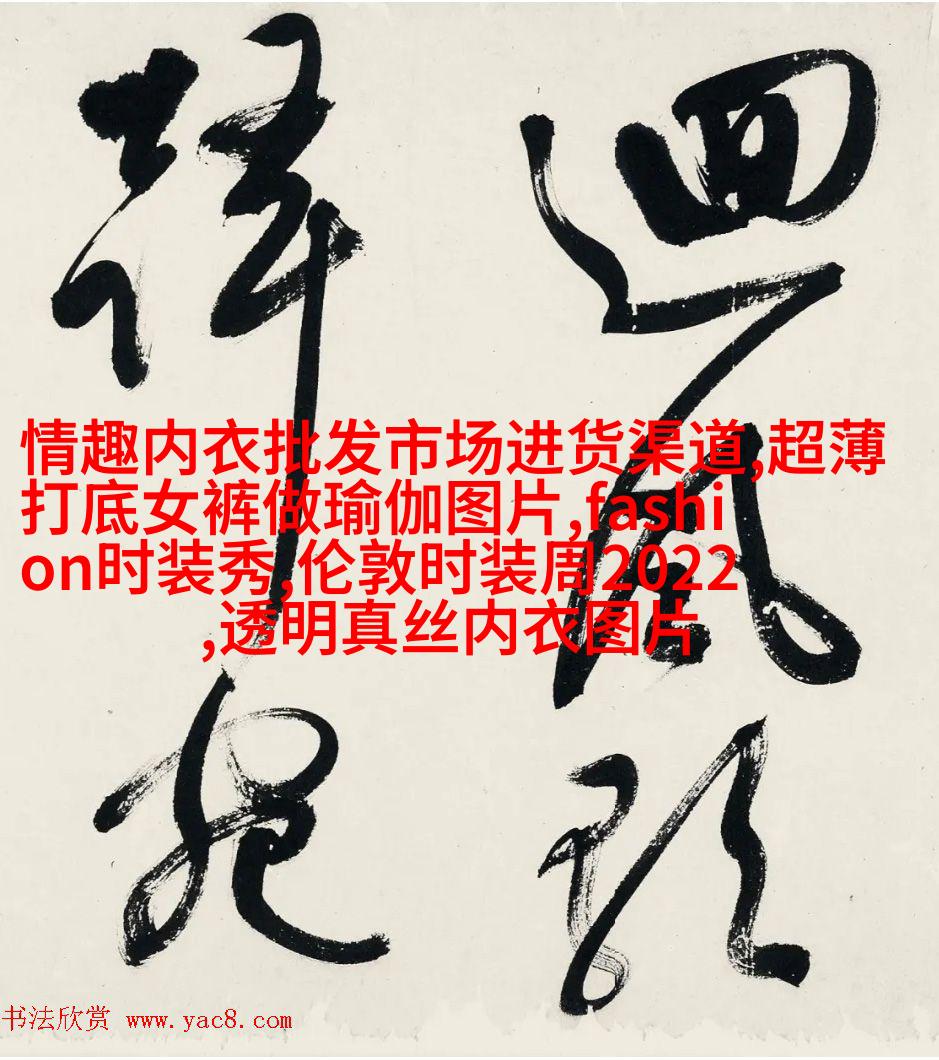 迴風
情趣内衣批发市场进货渠道,超薄
打底女裤做瑜伽图片,fashi
on时装秀,伦敦时装周2022
,透明真丝内衣图片
书法欣赏 www.yac8.com